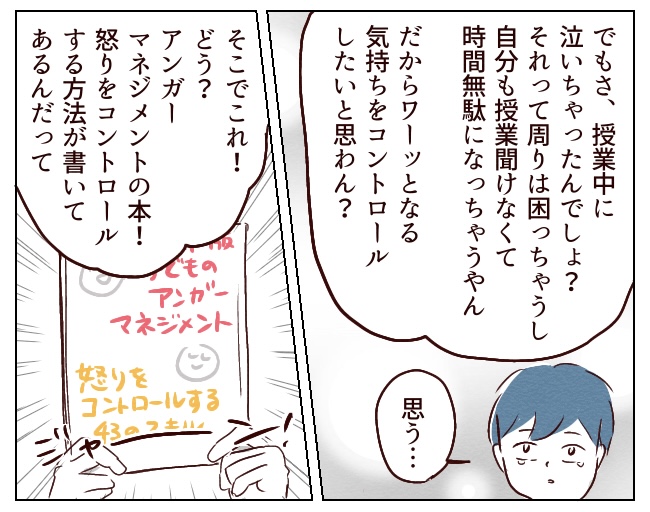 でもさ、授業中に
泣いちゃったんでしょ?
それって周りは困っちゃうし
自分も授業聞けなくて
時間無駄になっちゃうやん
だからワーッとなる
気持ちをコントロール
したいと思わん?
思う…
そこでこれ!
どう?
アンガー
マネジメントの本!
怒りをコントロール
する方法が書いて
あるんだって
版
どもの
アンガー
マネジメント
怒りを
コントロールする
43の
ジャーン!